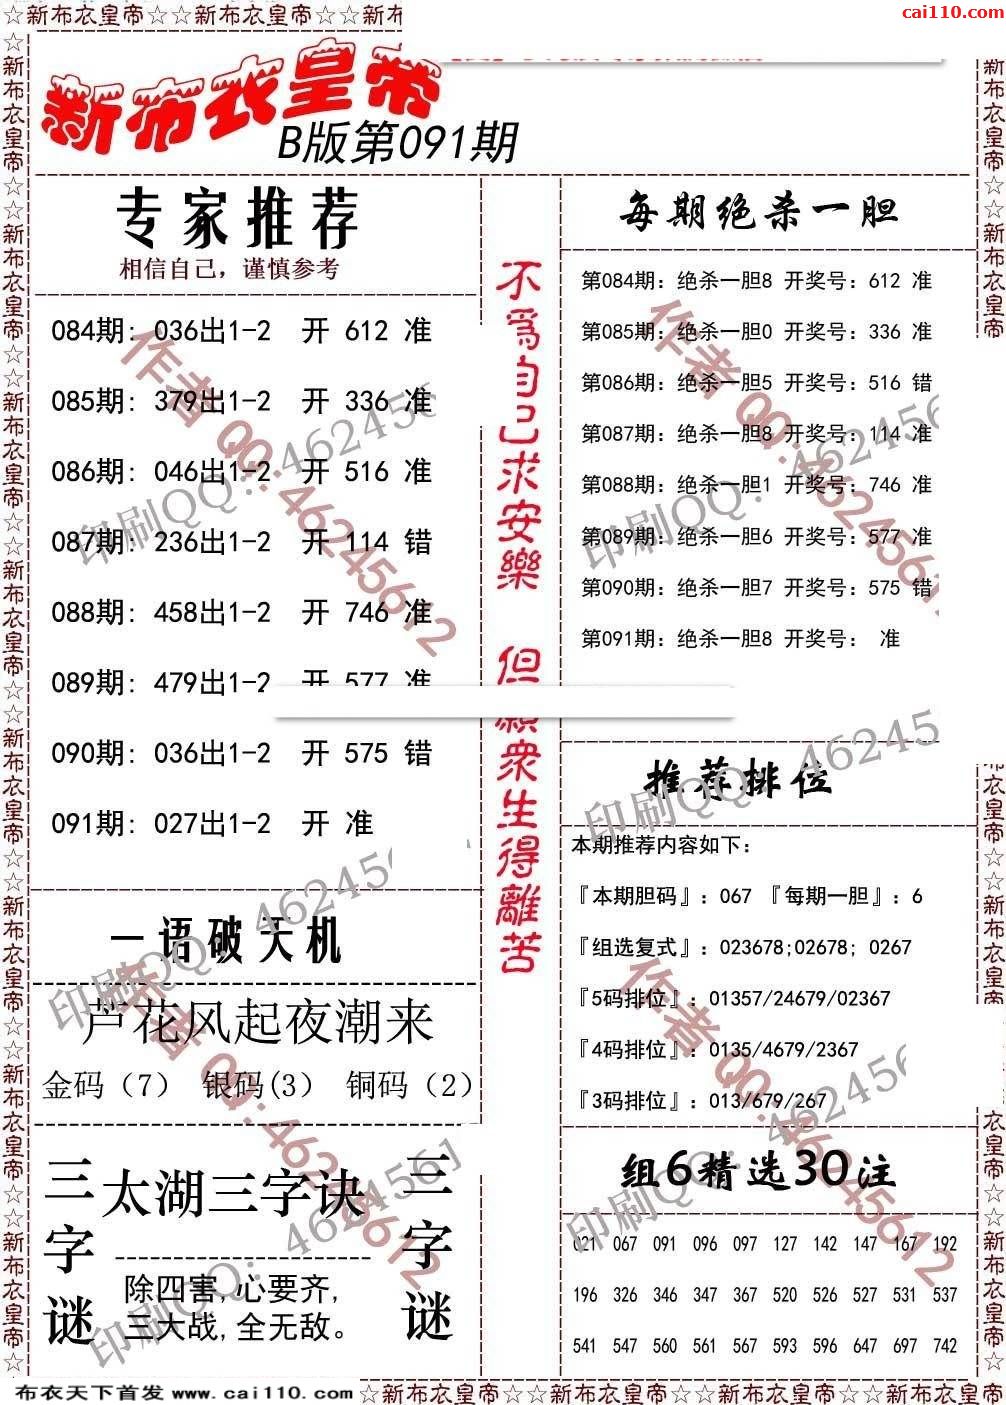 ☆新布衣皇帝☆☆新布衣皇帝☆☆新布
cai110.com
新布衣皇帝
B版第091期
专家推荐
相信自己，谨慎参考
084期: 036出1-2 开 612 准
085期: 379出1-2 开 336 准
086期: 046出1-2 开 516 准
087期: 236出1-2 开 114 错
088期: 458出1-2 开 746 准
089期: 479出1-2 开 577 准
090期: 036出1-2 开 575 错
091期: 027出1-2 开 准
一语破天机
芦花风起夜潮来
金码（7） 银码(3） 铜码（2）
三字谜
太湖三字诀
除四害,心要齐,
三大战,全无敌。
三字谜
不為自己求安樂 但願衆生得離苦
每期绝杀一胆
第084期: 绝杀一胆8 开奖号: 612 准
第085期: 绝杀一胆0 开奖号: 336 准
第086期: 绝杀一胆5 开奖号: 516 错
第087期: 绝杀一胆8 开奖号: 114 准
第088期: 绝杀一胆1 开奖号: 746 准
第089期: 绝杀一胆6 开奖号: 577 准
第090期: 绝杀一胆7 开奖号: 575 错
第091期: 绝杀一胆8 开奖号: 准
推荐排位
本期推荐内容如下:
『本期胆码』: 067 『每期一胆』: 6
『组选复式』: 023678;02678; 0267
『5码排位』: 01357/24679/02367
『4码排位』: 0135/4679/2367
『3码排位』: 013/679/267
组6精选30注
021 067 091 096 097 127 142 147 167 192
196 326 346 347 367 520 526 527 531 537
541 547 560 561 567 593 596 647 697 742
作者QQ:46245612
印刷QQ: 462456
布衣天下首发 www.cai110.com
☆新布衣皇帝☆☆新布衣皇帝☆☆新布衣皇帝☆☆新布衣皇帝☆